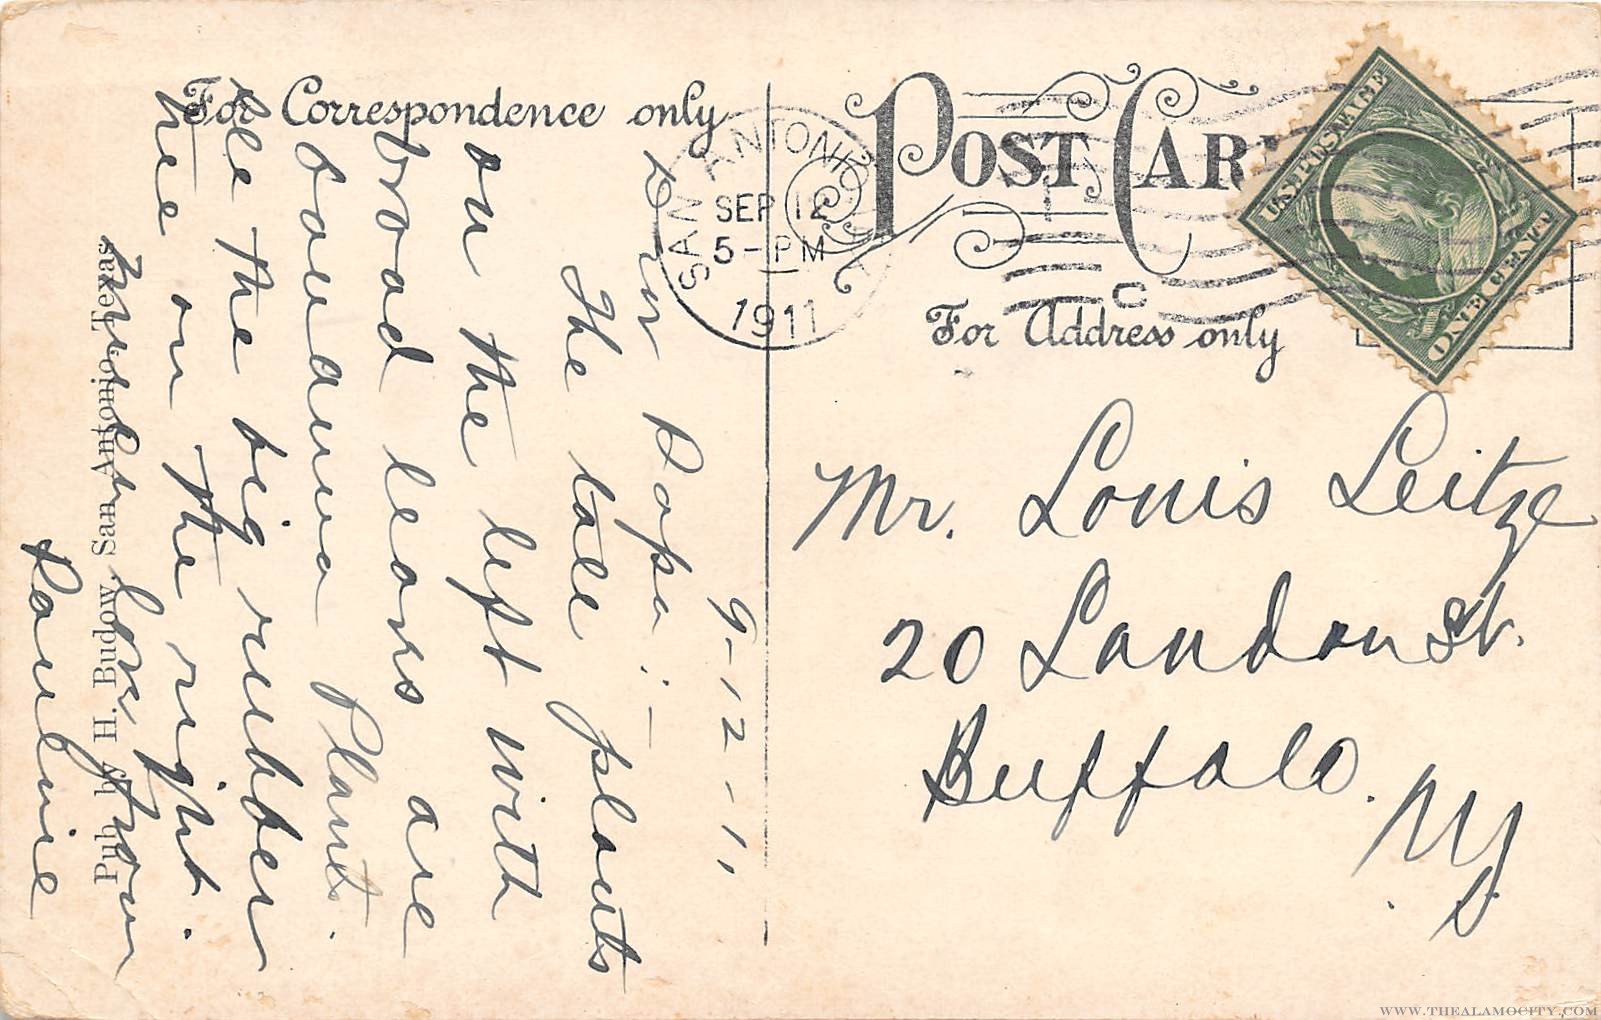 For Correspondence only
POST CARD
For Address only
SAN ANTONIO
SEP 12
5 - PM
1911
U.S. POSTAGE
ONE 1 CENT
9-12-11
Dear Papa:-
The tall plants
on the left with
broad leaves are
banana Plants.
See the big rubber
tree on the right.
love from
Pauline
Pub. by H. Budow, San Antonio, Texas
Mr. Louis Leitze
20 Landon St.
Buffalo.
N.Y.
WWW.THEALAMOCITY.COM